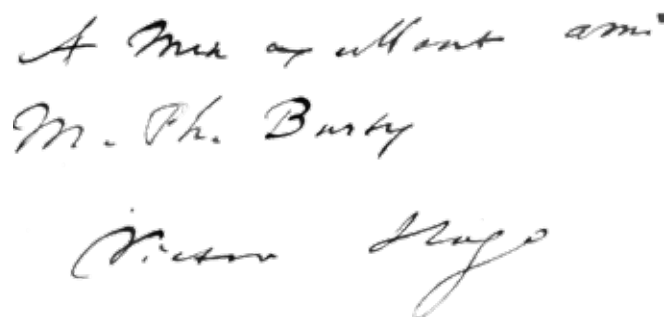 A mon excellent ami
M. Ph. Burty
Victor Hugo